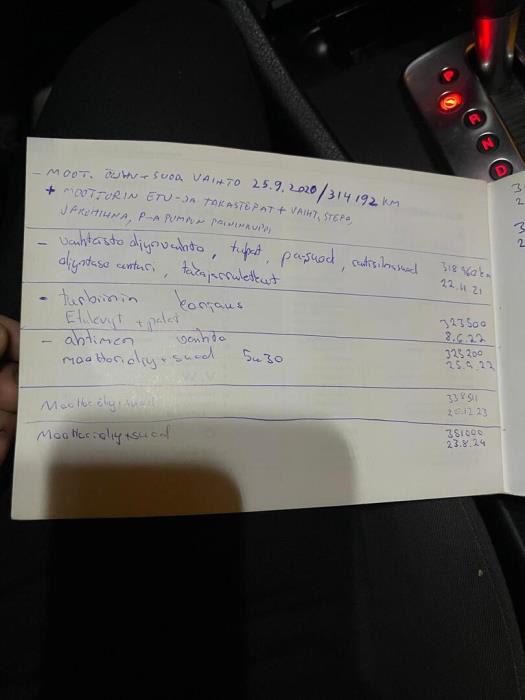 - MOOT. ÖLJYN + SUOD. VAIHTO 25.9.2020/314192 KM
+ MOOTTORIN ETU-JA TAKASTEPAT + VAIHT. STEPA,
JAKOHIHNA, P-A PUMPUN
- vaihteisto öljynvaihto, tulpat, pa-suod, raitisilmasuod 318 960 km
öljyntaso anturi, takajarruletkut 22.11.21
- turbiinin korjaus
Etulevyt + palat 323500
8.6.22
- ahtimen vaihto 325200
moottoriöljy + suod 5w30 25.9.22
Moottoriöljy + suod 338511
20.12.23
Moottoriöljy + suod 351000
23.8.24
P
R
N
D